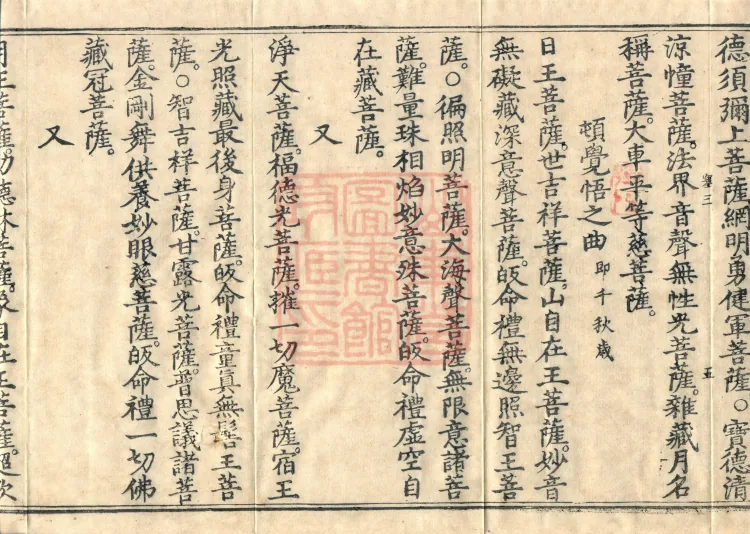 德須彌上菩薩網明勇健軍菩薩○寶德清
涼幢菩薩法界音聲無性光菩薩雜藏月名
稱菩薩大車平等慈菩薩
頓覺悟之曲 即千秋歲
日王菩薩世吉祥菩薩山自在王菩薩妙音
無礙藏深意聲菩薩皈命禮無邊照智王菩
薩○徧照明菩薩大海聲菩薩無限意諸菩
薩難量珠相焰妙意殊菩薩皈命禮虛空自
在藏菩薩
又
淨天菩薩福德光菩薩摧一切魔菩薩宿王
光照藏最後身菩薩皈命禮童真無髻王菩
薩○智吉祥菩薩甘露光菩薩普思議諸菩
薩金剛舞供養妙眼慈菩薩皈命禮一切佛
藏冠菩薩
又